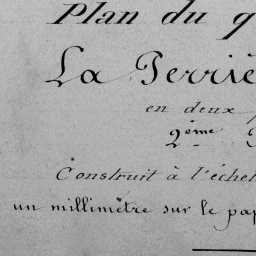 Plan du q
La Terriè
en deux
2ème
Construit à l'échel
un millimètre sur le pap